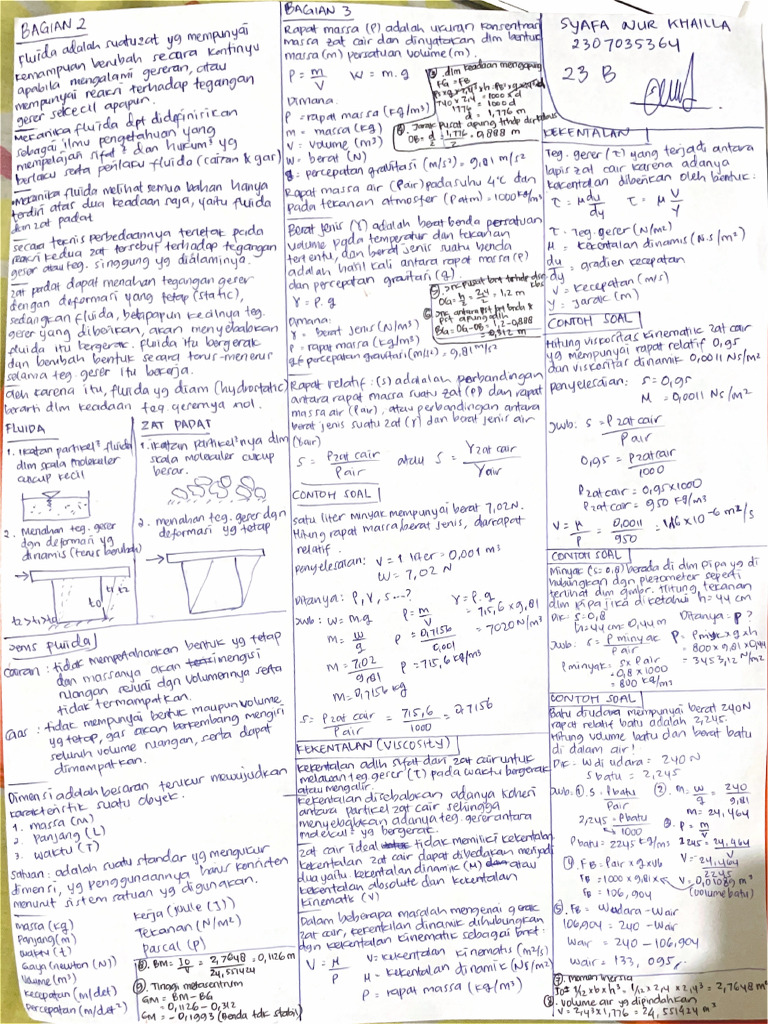 BAGIAN 2
Fluida adalah suatu zat yg mempunyai
kemampuan berubah secara kontinyu
apabila mengalami geseran, atau
mempunyai reaksi terhadap tegangan
geser sekecil apapun.
Mekanika fluida dpt didefinirikan
sebagai ilmu pengetahuan yang
mempelajari sifat² dan hukum² yg
berlaku serta perilaku fluida (cairan & gas)
Mekanika fluida melihat semua bahan hanya
terdiri atas dua keadaan saja, yaitu fluida
dan zat padat
secara teknis perbedaannya terletak pada
reaksi kedua zat tersebut terhadap tegangan
geser atau teg. singgung yg dialaminya.
zat padat dapat menahan tegangan geser
dengan deformasi yang tetap (static),
sedangkan fluida, betapapun kecilnya teg.
geser yang diberikan, akan menyebabkan
fluida itu bergerak. fluida itu bergerak
dan berubah bentuk secara terus-menerus
selama teg. geser itu bekerja.
oleh karena itu, fluida yg diam (hydrostatic)
berarti dlm keadaan teg. gesernya nol.
FLUIDA
1. ikatan partikel² fluida
dlm skala molekuler
cukup kecil
2. Menahan teg. geser
dgn deformasi yg
dinamis (terus berubah)
t0 t1 t2
t2>t1>t0
ZAT PADAT
1. ikatan partikel²nya dlm
skala molekuler cukup
besar.
2. menahan teg. geser dgn
deformasi yg tetap
Jenis Fluida
Cairan : tidak mempertahankan bentuk yg tetap
dan massanya akan mengisi
ruangan sesuai dgn volumennya serta
tidak termampatkan.
Gas : tidak mempunyai bentuk maupun volume
yg tetap, gas akan berkembang mengisi
seluruh volume ruangan, serta dapat
dimampatkan.
Dimensi adalah besaran terukur mewujudkan
karakteristik suatu obyek.
1. massa (m)
2. panjang (L)
3. waktu (T)
Satuan : adalah suatu standar yg mengukur
dimensi, yg penggunaannya harus konsisten
menurut sistem satuan yg digunakan.
massa (kg)
Panjang (m)
waktu (t)
Gaya (newton (N))
Volume (m³)
Kecepatan (m/det)
Percepatan (m/det²)
Kerja (joule (J))
Tekanan (N/m²)
Pascal (P)
⑧. BM = Io/V = 2,7648/24,551424 = 0,1126 m
⑨. Tinggi metasentrum
GM = BM - BG
= 0,1126 - 0,312
GM = - 0,1993 (benda tdk stabil)
BAGIAN 3
Rapat massa (ρ) adalah ukuran konsentrasi
massa zat cair dan dinyatakan dlm bentuk
massa (m) persatuan volume (m).
ρ = m/V W = m.g
Dimana:
ρ = rapat massa (kg/m³)
m = massa (kg)
V = volume (m³)
W = berat (N)
g = percepatan gravitasi (m/s²) = 9,81 m/s²
③. dlm keadaan mengapung
FG = FB
740 x 2,4 = 1000 x d
1776 = 1000 d
d = 1,776 m
④. Jarak pusat apung trhdp dsr tabus
OB = d/2 = 1,776/2 = 0,888 m
Rapat massa air (ρair) pada suhu 4°C dan
pada tekanan atmosfer (Patm) = 1000 kg/m³
Berat jenis (γ) adalah berat benda persatuan
volume pada temperatur dan tekanan
tertentu, dan berat jenis suatu benda
adalah hasil kali antara rapat massa (ρ)
dan percepatan gravitasi (g).
γ = ρ.g
dimana:
γ = berat jenis (N/m³)
ρ = rapat massa (kg/m³)
g = percepatan gravitasi (m/s²) = 9,81 m/s²
OG = h/2 = 2,4/2 = 1,2 m
BG = OG - OB = 1,2 - 0,888
= 0,312 m
Rapat relatif : (s) adalalah perbandingan
antara rapat massa suatu zat (ρ) dan rapat
massa air (ρair), atau perbandingan antara
berat jenis suatu zat (γ) dan berat jenis air
(γair)
S = ρzat cair/ρair atau S = γzat cair/γair
CONTOH SOAL
satu liter minyak mempunyai berat 7,02N.
Hitung rapat massa, berat jenis, dan rapat
relatif.
Penyelesaian: V = 1 liter = 0,001 m³
W = 7,02 N
Ditanya : ρ, γ, s ...?
Jwb : W = m.g
m = W/g
m = 7,02/9,81
m = 0,7156 kg
ρ = m/V
ρ = 0,7156/0,001
ρ = 715,6 kg/m³
γ = ρ.g
= 715,6 x 9,81
= 7020 N/m³
s = ρzat cair/ρair = 715,6/1000 = 0,7156
KEKENTALAN (VISCOSITY)
kekentalan adlh sifat dari zat cair untuk
melawan teg geser (τ) pada waktu bergerak
atau mengalir.
kekentalan disebabkan adanya kohesi
antara partikel zat cair sehingga
menyebabkan adanya teg. geser antara
molekul² yg bergerak.
zat cair ideal tidak memiliki kekentalan
kekentalan zat cair dapat dibedakan menjadi
dua yaitu kekentalan dinamik (μ) atau
kekentalan absolute dan kekentalan
kinematis (v)
Dalam beberapa masalah mengenai gerak
zat cair, kekentalan dinamik dihubungkan
dgn kekentalan kinematik sebagai brkt:
V = μ/ρ
V = kekentalan kinematis (m²/s)
μ = kekentalan dinamik (Ns/m²)
ρ = rapat massa (kg/m³)
SYAFA NUR KHAILLA
2307035364
23 B
KEKENTALAN
Teg. geser (τ) yang terjadi antara
lapis zat cair karena adanya
kekentalan diberikan oleh bentuk:
τ = μ du/dy τ = μ V/Y
τ = Teg. geser (N/m²)
μ = kekentalan dinamis (N.s/m²)
du/dy = gradien kecepatan
V = kecepatan (m/s)
Y = jarak (m)
CONTOH SOAL
Hitung viscositas kinematic zat cair
yg mempunyai rapat relatif 0,95
dan viscositas dinamik 0,0011 Ns/m²
penyelesaian: s = 0,95
μ = 0,0011 Ns/m²
Jwb: s = ρzat cair/ρair
0,95 = ρzat cair/1000
ρzat cair = 0,95 x 1000
ρzat cair = 950 kg/m³
V = μ/ρ = 0,0011/950 = 1,16 x 10⁻⁶ m²/s
CONTOH SOAL
Minyak (s=0,8) berada di dlm pipa yg di
hubungkan dgn piezometer seperti
terlihat dlm gmbr. Hitung tekanan
dlm pipa jika diketahui h=44 cm
Dik: s = 0,8
h = 44 cm = 0,44 m
Ditanya = P?
Jwb: s = ρminyak/ρair
ρminyak = s x ρair
= 0,8 x 1000
= 800 kg/m³
= 800 x 9,81 x 0,44
= 3453,12 N/m²
CONTOH SOAL
Batu di udara mempunyai berat 240N
rapat relatif batu adalah 2,245.
Hitung volume batu dan berat batu
di dalam air!
Dik: W di udara = 240 N
s batu = 2,245
Jwb: ①. s = ρbatu/ρair
2,245 = ρbatu/1000
ρbatu = 2245 kg/m³
②. m = W/g = 240/9,81
m = 24,464
③. ρ = m/V
2245 = 24,464/V
V = 24,464/2245
V = 0,01089 m³
(volume batu)
④. FB = ρair x g x Vb
FB = 1000 x 9,81 x
FB = 106,904
⑤. FB = Wudara - Wair
106,904 = 240 - Wair
Wair = 240 - 106,904
Wair = 133,095
⑦. momen inersia
Io = 1/12 x b x h³ = 1/12 x 2,4 x 2,4³ = 2,7648 m⁴
⑧. volume air yg dipindahkan